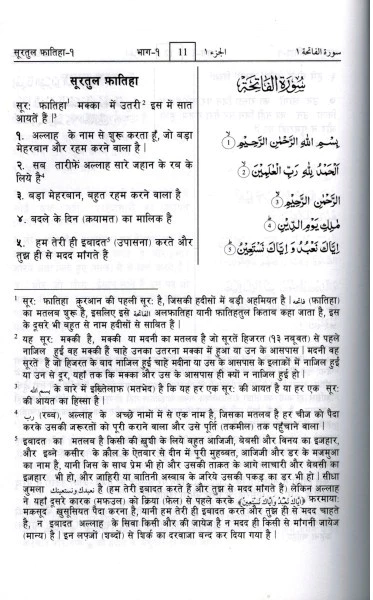 सूरतुल फातिहा-१ भाग-१ 11 الجزء ١ سورة الفاتحة ١
सूरतुल फातिहा
सूर: फातिहा¹ मक्का में उतरी² इस में सात
आयतें हैं |³
१. अल्लाह के नाम से शुरू करता हूँ, जो बड़ा
मेहरबान और रहम करने वाला है |
२. सब तारीफें अल्लाह सारे जहान के रब के
लिये है⁴
३. बड़ा मेहरबान, बहुत रहम करने वाला है
४. बदले के दिन (क़यामत) का मालिक है
५. हम तेरी ही इबादत⁵ (उपासना) करते और
तुझ ही से मदद मांगते हैं
سُورَةُ الْفَاتِحَةِ
بِسْمِ اللهِ الرَّحْمٰنِ الرَّحِيْمِ ①
اَلْحَمْدُ لِلّٰهِ رَبِّ الْعٰلَمِيْنَ ②
الرَّحْمٰنِ الرَّحِيْمِ ③
مٰلِكِ يَوْمِ الدِّيْنِ ④
اِيَّاكَ نَعْبُدُ وَاِيَّاكَ نَسْتَعِيْنُ ⑤
¹ सूर: फातिहा क़ुरआन की पहली सूर: है, जिसकी हदीसों में बड़ी अहमियत है | فاتحه (फातिहा)
का मतलब शुरू है, इसलिए इसे الفاتحة अलफातिहा यानी फातिहतुल किताब कहा जाता है, इस
के दूसरे भी बहुत से नाम हदीसों से साबित हैं |
² यह सूर: मक्की है, मक्की या मदनी का मतलब है जो सूरतें हिजरत (१३ नबूवत) से पहले
नाजिल हुई वह मक्की हैं चाहे उनका उतरना मक्का में हुआ या उन के आसपास | मदनी वह
सूरतें हैं जो हिजरत के बाद नाजिल हुई चाहे मदीना या उस के आसपास के इलाकों में नाजिल हुई
या उन से दूर, यहाँ तक कि मक्का और उस के आसपास ही क्यों न नाजिल हुई हो |
³ بسم الله के बारे में इख़्तेलाफ़ (मतभेद) है कि यह हर एक सूर: की आयत है या हर एक सूर:
की आयत का हिस्सा है |
⁴ رب (रब्ब), अल्लाह के अच्छे नामों में से एक नाम है, जिसका मतलब है हर चीज को पैदा
करके उसकी जरूरतों को पूरी कराने वाला और उसे पूर्ति (तकमील) तक पहुँचाने वाला |
⁵ इबादत का मतलब है किसी की ख़ुशी के लिये बहुत आजिजी, बेबसी और विनय का इज़हार,
और इब्ने कसीर के क़ौल के ऐतबार से दीन में पूरी मुहब्बत, आजिजी और डर के मजमुआ
का नाम है, यानी जिस के साथ प्रेम भी हो और उसकी ताक़त के आगे लाचारी और बेबसी का
इज़हार भी हो, और जाहिरी या बातिनी अस्बाब के जरिये उसकी पकड़ का डर भी हो | सीधा
जुमला نعبدك ونستعينك है (हम तेरी इबादत करते हैं और तुझ से मदद मांगते हैं) लेकिन अल्लाह
ने यहाँ दूसरे कारक (मफ़ऊल) को क्रिया (फेल) से पहले करके (إياك نعبد وإياك نستعين) फरमाया:
मकसूद ख़ुसूसियत पैदा करना है, यानी हम तेरी ही इबादत करते और तुझ ही से मदद चाहते
है, न इबादत अल्लाह के सिवा किसी और की जायेज है न मदद ही किसी से मांगनी जायेज
(मान्य) है | इन लफ्जों (शब्दों) से शिर्क का दरवाजा बन्द कर दिया गया है |